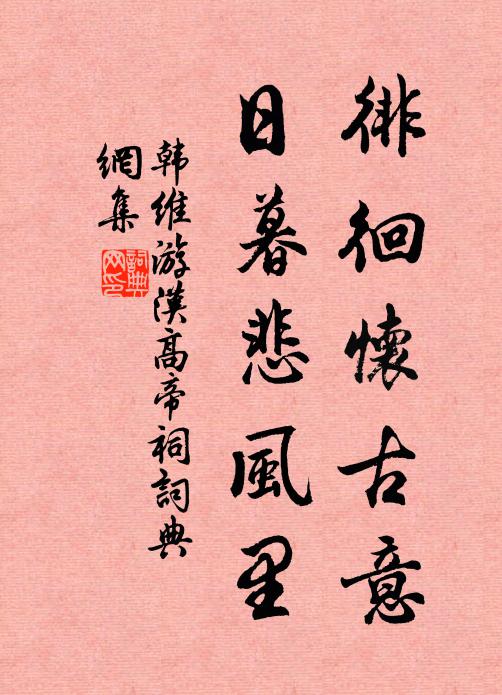 徘徊懷古意
日暮悲風里
韩维游漢高帝祠詞典
網集
詞典
网印